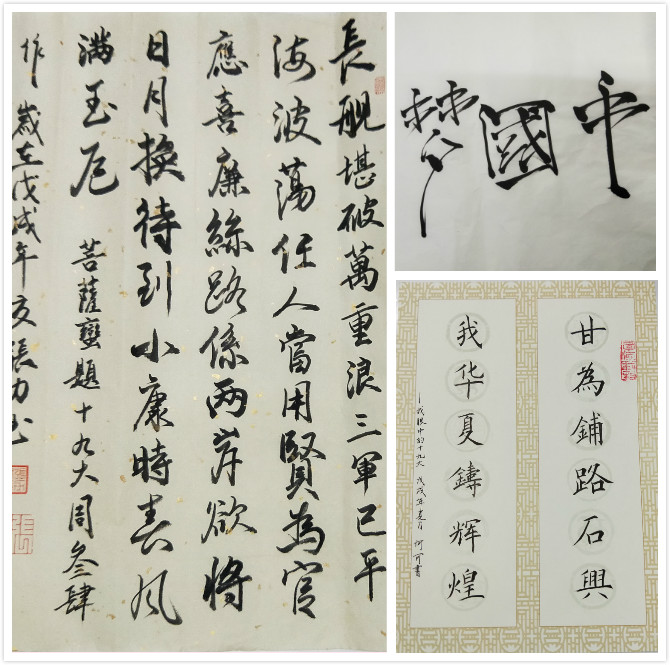 長舰堪破萬重浪三軍已平
海波蕩任人當用賢為官
應喜廉絲路係兩岸欲將
日月換待到小康時春风
滿玉卮 菩薩蠻題十九大周叁肆
作 歲在戊戌年夏張力书
中國梦
甘為鋪路石興
我华夏鑄辉煌
—我眼中的十九大 戊戌年夏月 何書